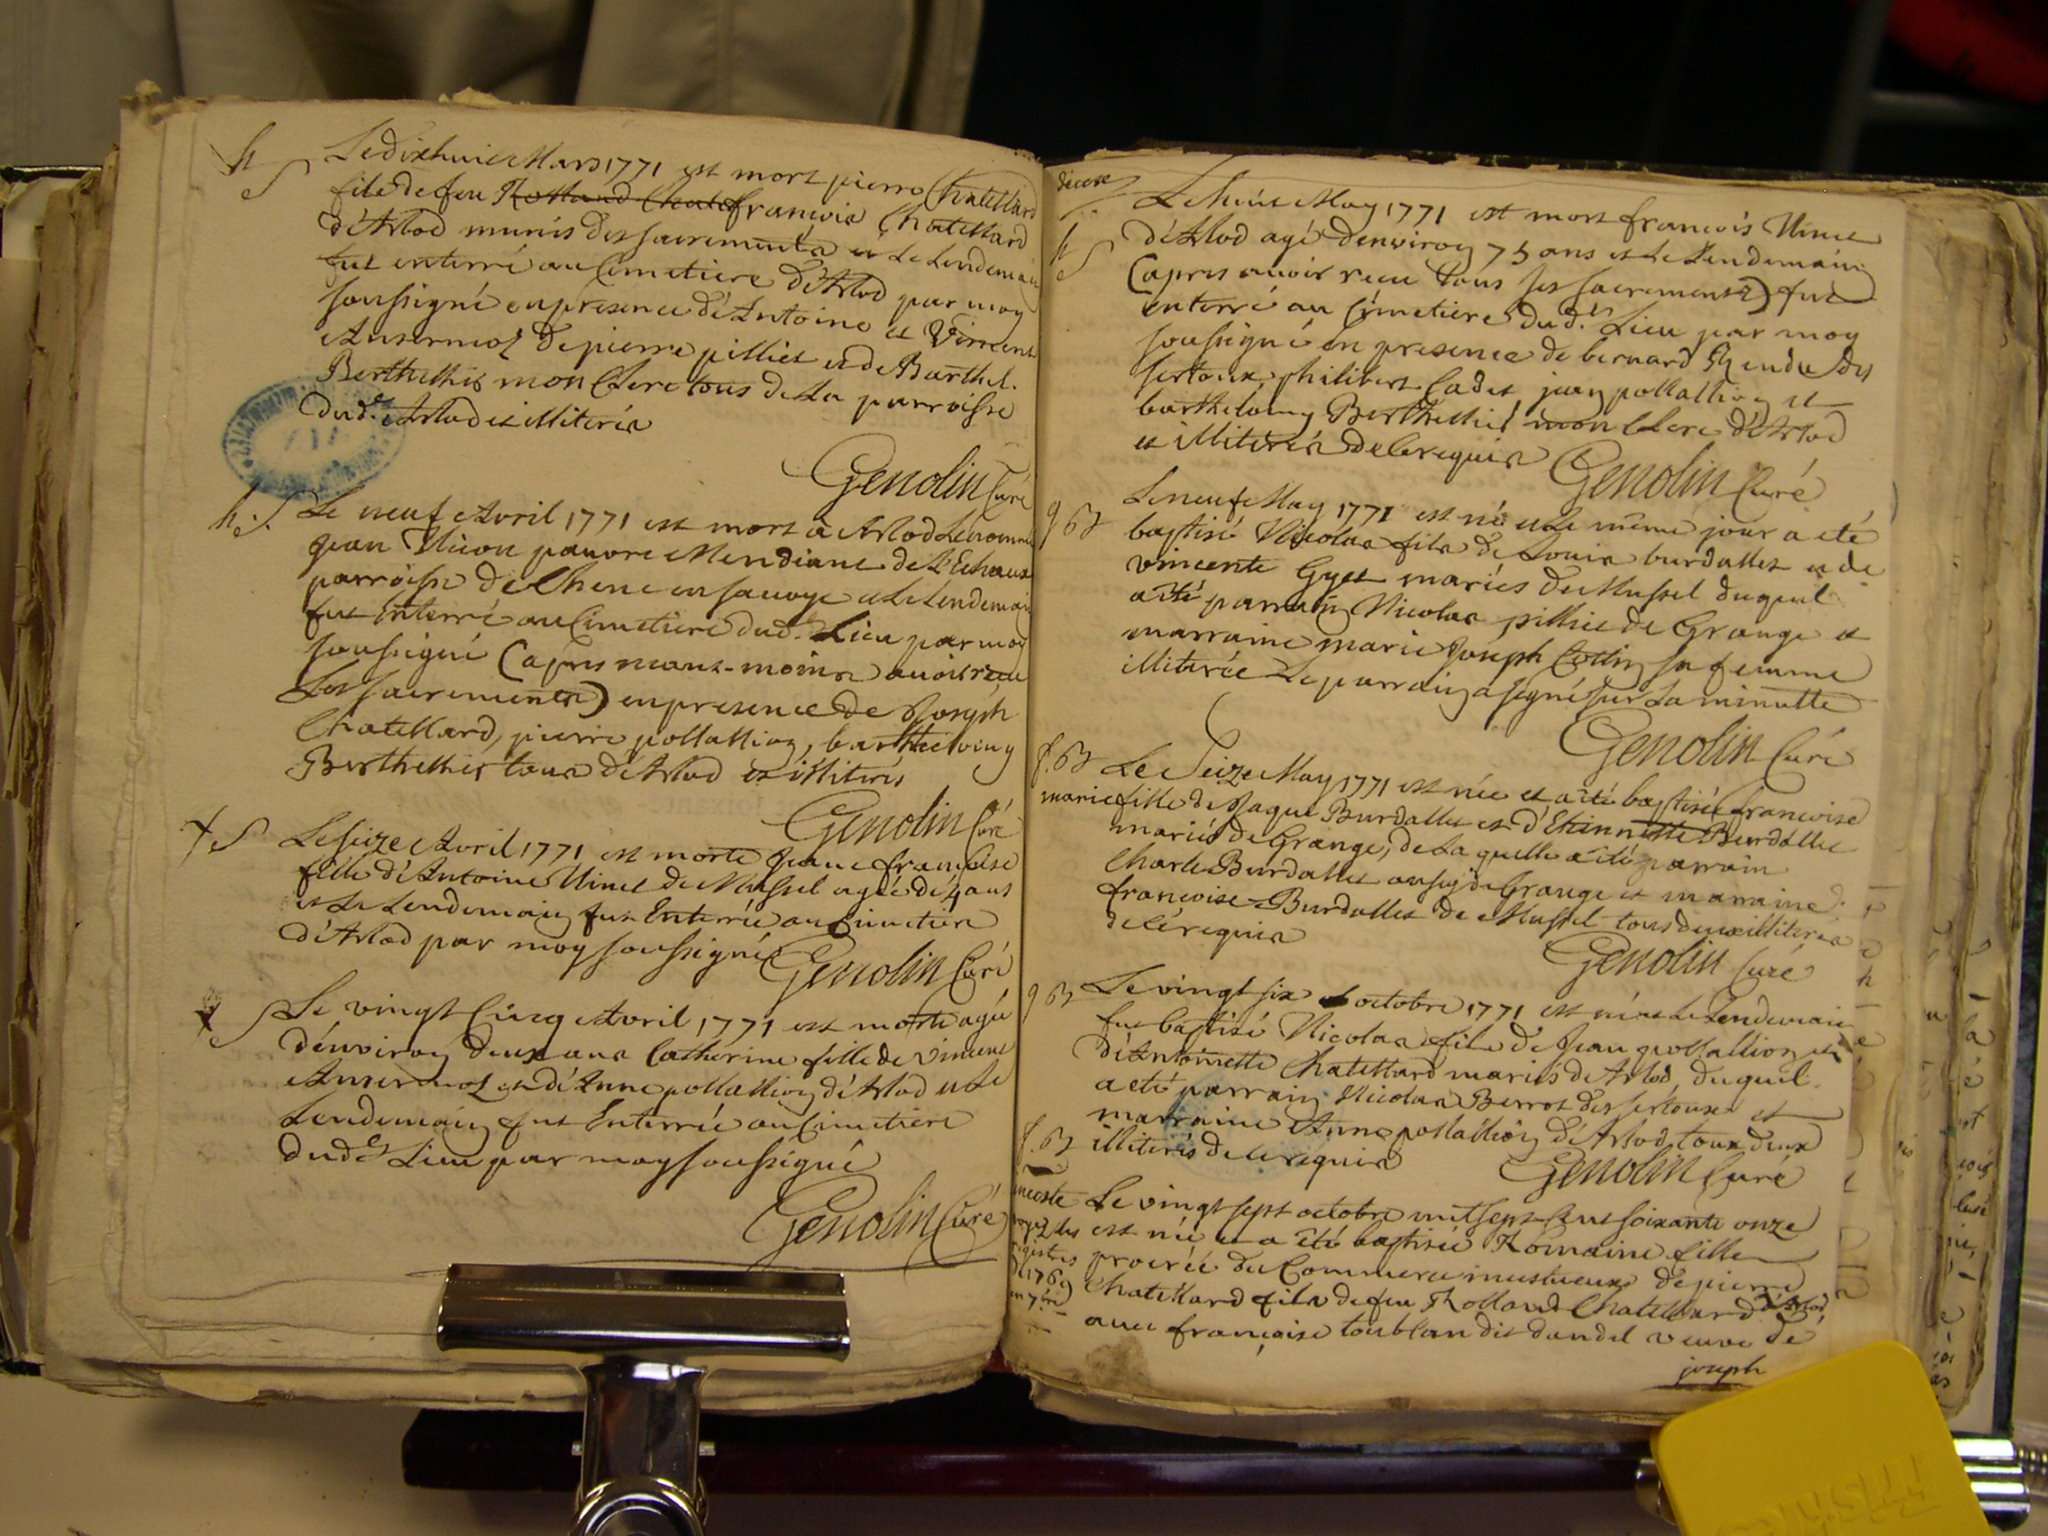 h
S
Le dixhuit Mars 1771 est mort pierre Chatellard
fils de feu Rolland Chatel françois Chatellard
d'Arlod munis des sacrements et Le Lendemain
fut enterré au Cimetiere d'Arlod par moy
soussigné en presence d'Antoine et Vincent
Ansermoz de pierre pilliet et de Barthel.
Berthellier mon Clerc tous de La parroisse
dud. Arlod et illiterés
Genolin Curé
h. S.
Le neuf Avril 1771 est mort à Arlod Le nommé
jean Nicou pauvre Mendiant de
parroisse de Chene en savoye et Le Lendemain
fut Enterré au Cimetiere dud. Lieu par moy
soussigné (apres neant-moins avoir reçu
Les sacrements) en presence de Joseph
Chatellard, pierre pollallion, barthelemy
Berthellier tous d'Arlod et illiterés
Genolin Curé
f S
Le seize Avril 1771 est morte Jeane françoise
fille d'Antoine Vinet de Mussel agée de 4 ans
et Le Lendemain fut Enterrée au Cimetiere
d'Arlod par moy soussigné
Genolin Curé
S
Le vingt Cinq Avril 1771 est morte agée
d'environ deux ans Catherine fille de Vincent
Ansermoz et d'Anne pollallion d'Arlod et Le
Lendemain fut Enterrée au Cimetiere
dud. Lieu par moy soussigné
Genolin Curé
h
S
Le huit May 1771 est mort françois Vinet
d'Arlod agé d'environ 75 ans et Le Lendemain
(apres avoir reçu tous ses sacrements) fut
enterré au Cimetiere dud. Lieu par moy
soussigné en presence de bernard Rendu des
sertoux, philibert Cadet, jean pollallion et
barthelemy Berthellier mon Clerc d'Arlod
et illiterés de Ce requis
Genolin Curé
g Bt
Le neuf May 1771 est né et Le même jour a eté
baptisé Nicolas fils de Louis burdallet et de
vincente Gyet mariés de Mussel duquel
a été parrain Nicolas pilliet de Grange et
marraine marie Joseph Collin sa femme
illiterée Le parrain a signé sur La minutte
Genolin Curé
f. Bt
Le Seize May 1771 est née et a été baptisée francoise
marie fille de Jaque Burdallet et d'Etiennette Burdallet
mariés de Grange, de Laquelle a été parrain
Charle Burdallet aussy de Grange et marraine
françoise Burdallet de Mussel tous deux illiterés
de Ce requis
Genolin Curé
g Bt
Le vingt six octobre 1771 est né et Le Lendemain
fut baptisé Nicolas fils de Jean pollallion et
d'Antoinette Chatellard mariés de Arlod, duquel
a eté parrain Nicolas Berrot des sertoux et
marraine Anne pollallion d'Arlod tous deux
illiterés de Ce requis
Genolin Curé
f. Bt
inceste
voyez les
registres
de 1769
en 7bre
Le vingt sept octobre mil sept Cent soixante onze
est née et a été baptisée Romaine fille
procréé du Commerce incestueux de pierre
Chatellard fils de feu Rolland Chatellard d'Arlod,
avec françoise tournblan dit dandel veuve de
joseph